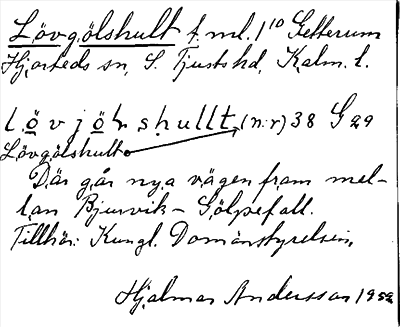 Lövgölshult f. ml. 1¹⁰ Getterum
Hjorteds sn, S. Tjusts hd, Kalm. l.
l ö v j ö l s h u l l t, (n:r) 38 G 29
Lövgölshult
Där går nya vägen fram mel-
lan Bjurvik - Gölpefall.
Tillhör: Kungl. Domänstyrelsen,
Hjalmar Andersson 1952